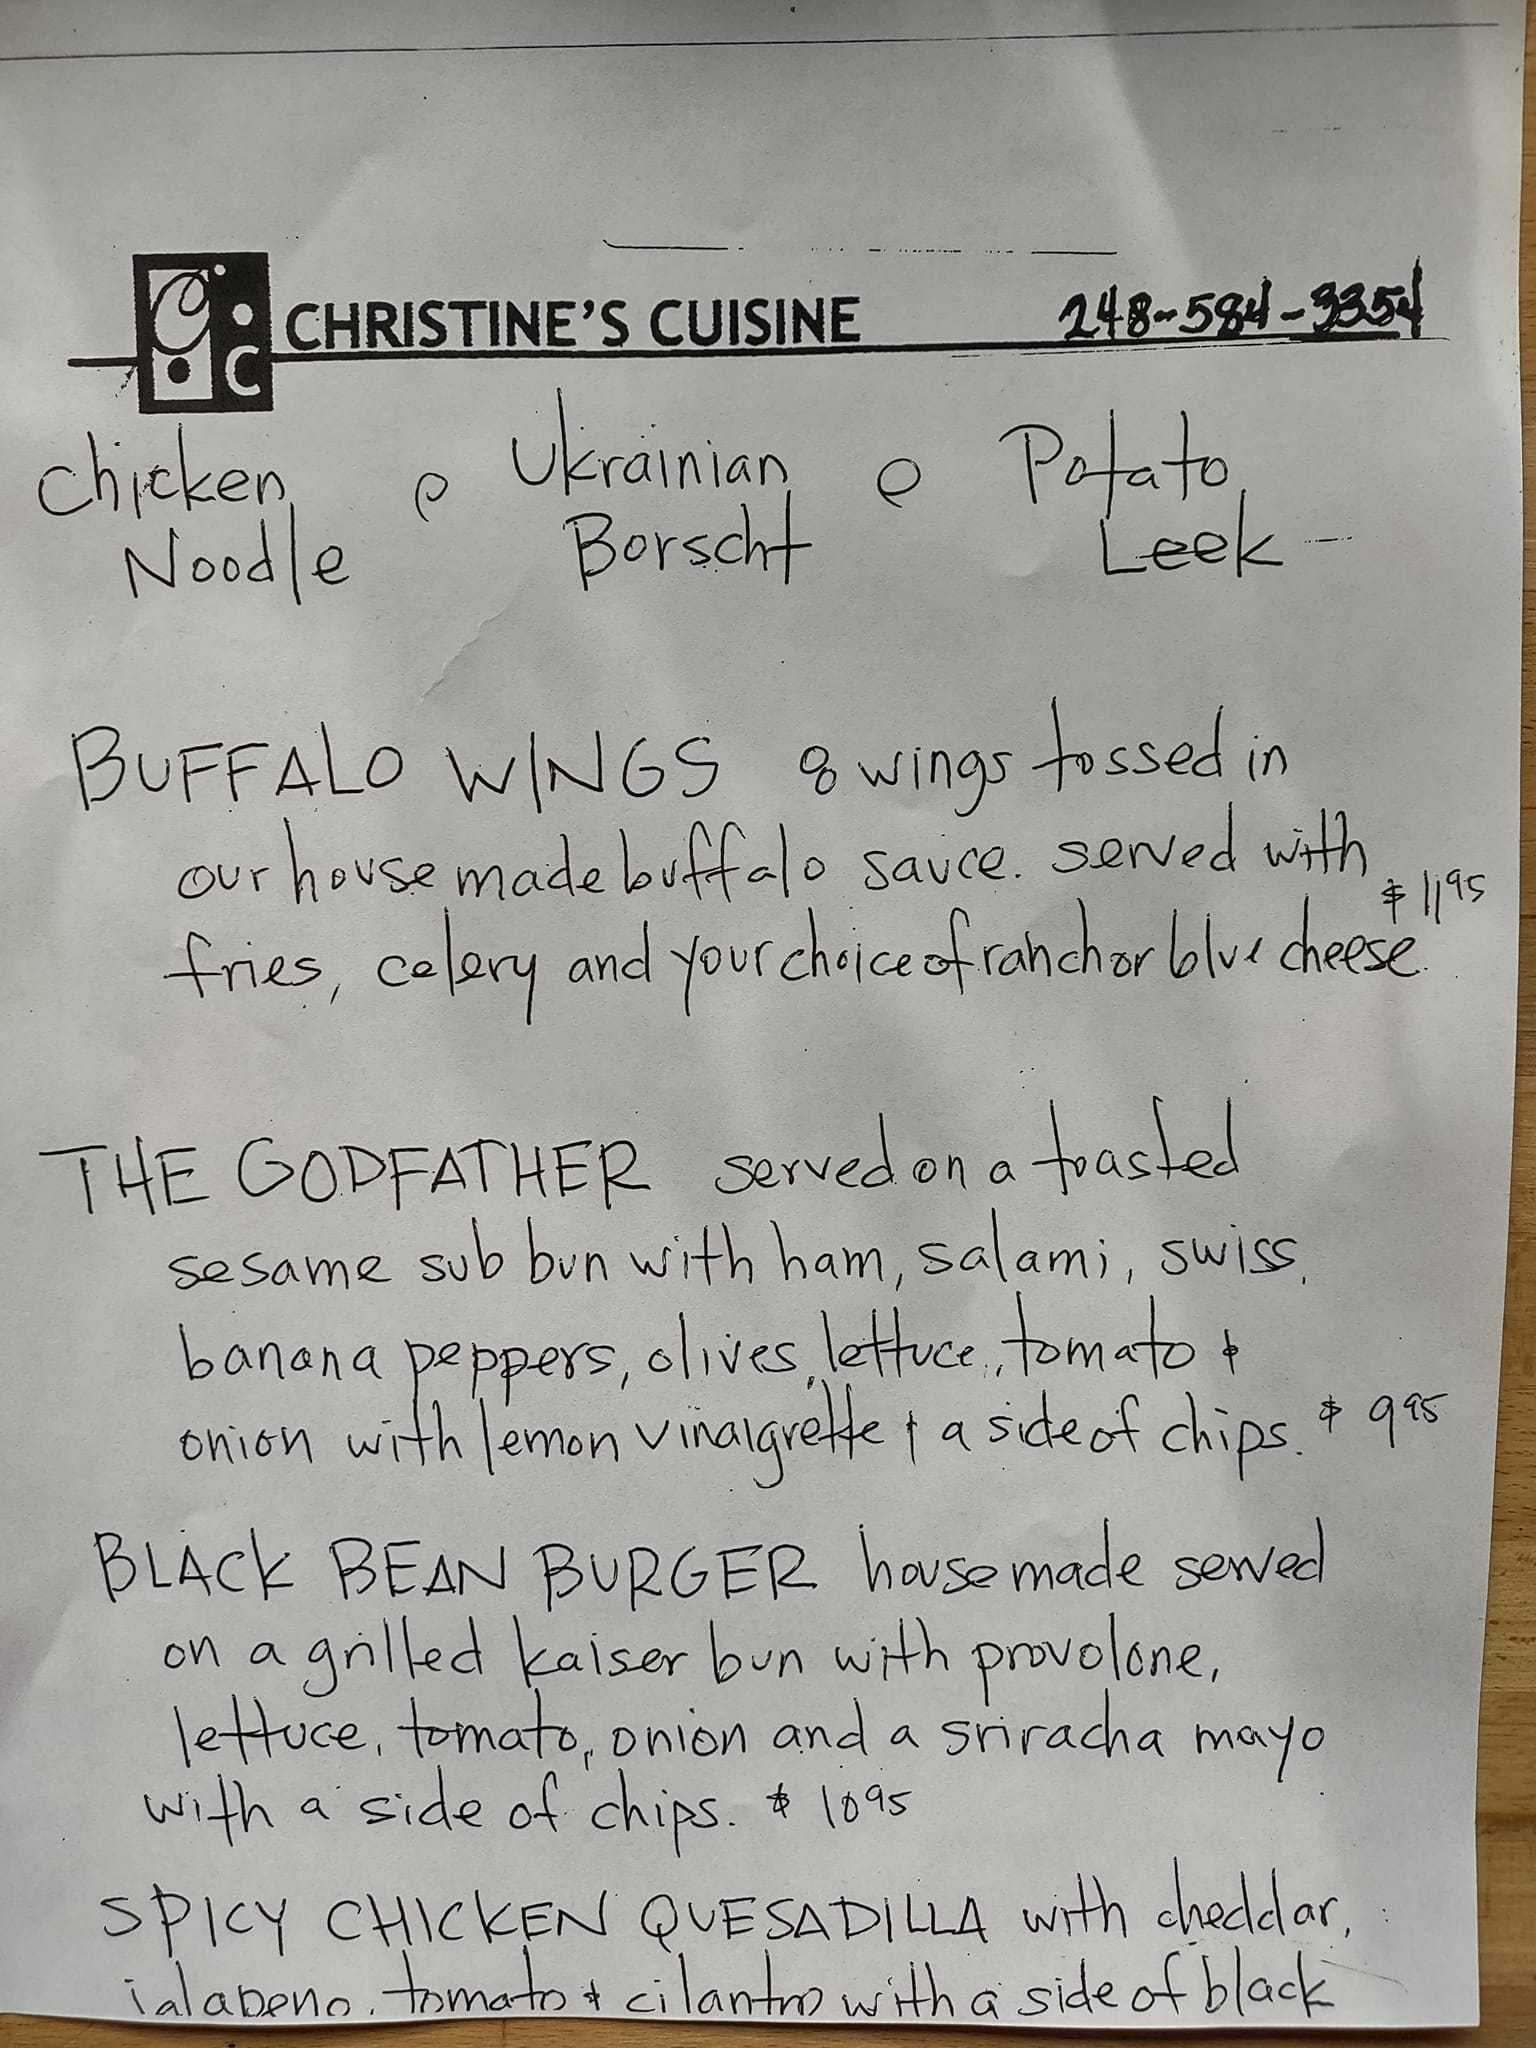 CHRISTINE'S CUISINE 248-584-3354
Chicken Ukrainian Potato
Noodle Borscht Leek
BUFFALO WINGS 8 wings tossed in
our house made buffalo sauce. served with
$ 11.95
fries, celery and your choice of ranch or blue cheese.
THE GODFATHER served on a toasted
sesame sub bun with ham, salami, swiss,
banana peppers, olives, lettuce, tomato &
onion with lemon vinaigrette & a side of chips. $ 9 95
BLACK BEAN BURGER house made served
on a grilled kaiser bun with provolone,
lettuce, tomato, onion and a sriracha mayo
with a side of chips. $ 10 95
SPICY CHICKEN QUESADILLA with cheddar,
jalapeno, tomato & cilantro with a side of black